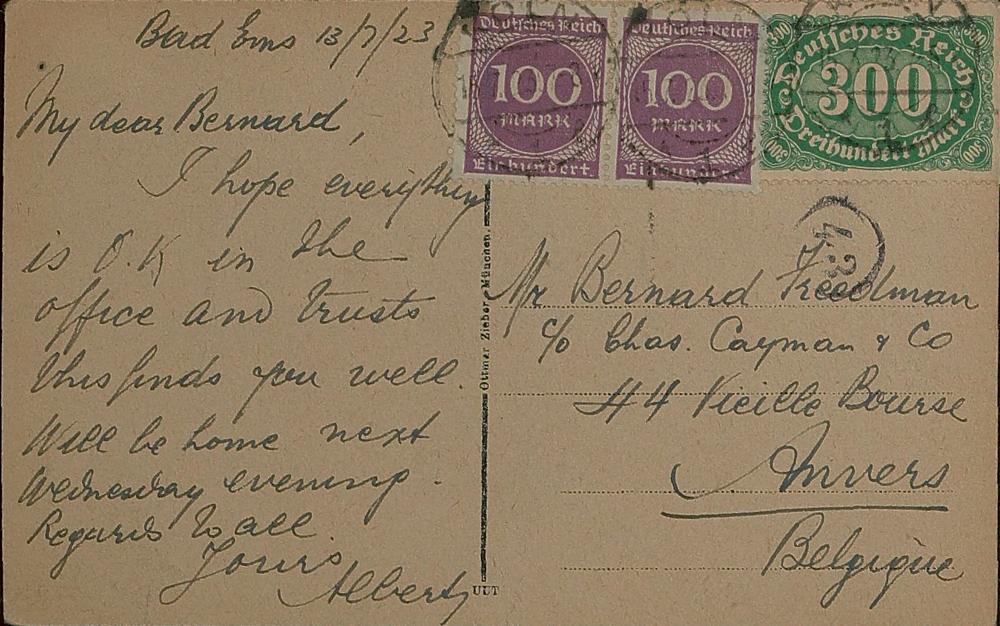 Bad Ems 13/7/23
My dear Bernard,
I hope everything
is O.K in the
office and trusts
this finds you well.
Will be home next
Wednesday evening.
Regards to all.
Yours
Albert
Deutsches Reich
100
MARK
Einhundert.
Deutsches Reich
100
MARK
Einhundert
300
300
Deutsches Reich
300
Dreihundert Mark
300
300
43
Ottmar Zieher, München.
UUT
Mr Bernard Freedman
c/o Chas. Cayman & Co
44 Vieille Bourse
Anvers
Belgique